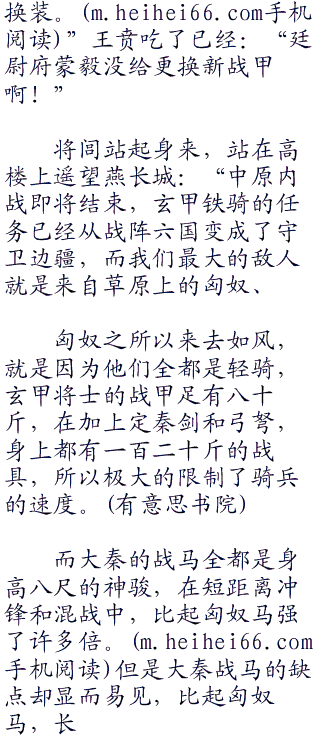 换装。(m.heihei66.com手机
阅读)”王贲吃了已经：“廷
尉府蒙毅没给更换新战甲
啊！”
将闾站起身来，站在高
楼上遥望燕长城：“中原内
战即将结束，玄甲铁骑的任
务已经从战阵六国变成了守
卫边疆，而我们最大的敌人
就是来自草原上的匈奴、
匈奴之所以来去如风，
就是因为他们全都是轻骑，
玄甲将士的战甲足有八十
斤，在加上定秦剑和弓弩，
身上都有一百二十斤的战
具，所以极大的限制了骑兵
的速度。(有意思书院)
而大秦的战马全都是身
高八尺的神骏，在短距离冲
锋和混战中，比起匈奴马强
了许多倍。(m.heihei66.com
手机阅读)但是大秦战马的缺
点却显而易见，比起匈奴
马，长